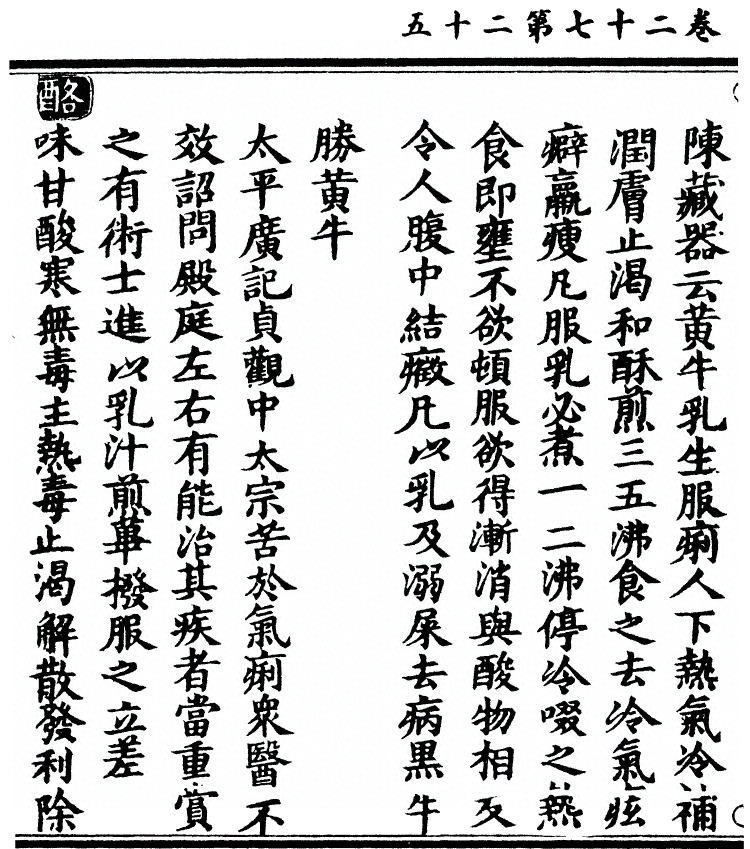 卷二十七第二十五
陳藏器云黃牛乳生服痢人下熱氣冷補
潤膚止渴和酥煎三五沸食之去冷氣痃
癖羸瘦凡服乳必煮一二沸停冷啜之熱
食即壅不欲頓服欲得漸消與酸物相反
令人腹中結癥凡以乳及溺屎去病黑牛
勝黃牛
太平廣記貞觀中太宗苦於氣痢眾醫不
效詔問殿庭左右有能治其疾者當重賞
之有術士進以乳汁煎蓽撥服之立差
酪
味甘酸寒無毒主熱毒止渴解散發利除